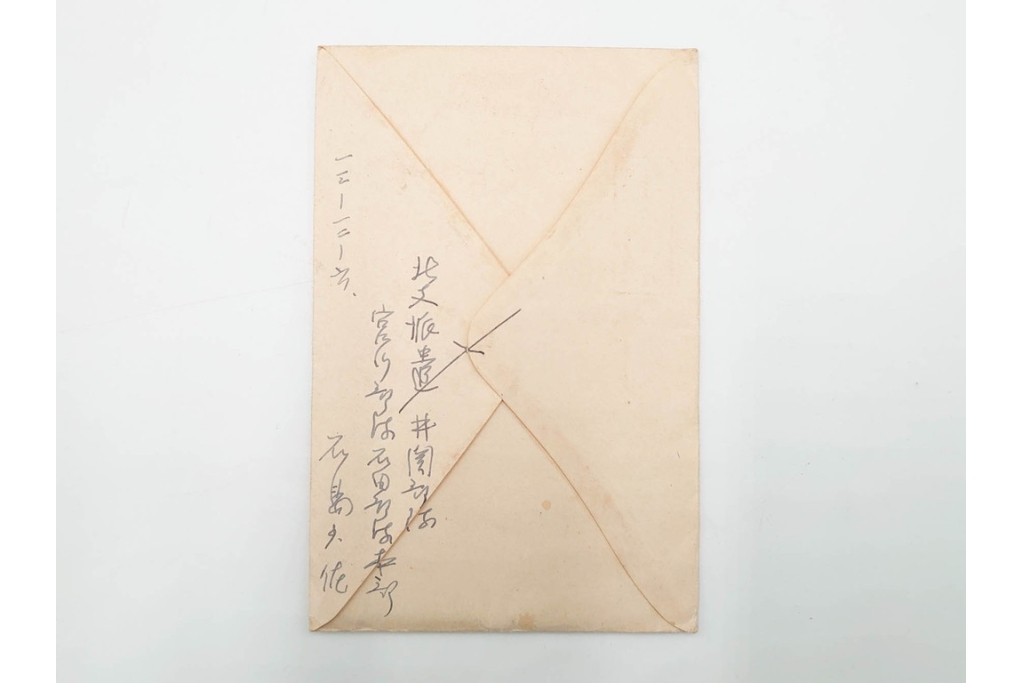 北支派遣 井関部隊
宮川部隊石田部隊本部
石島少佐
一三―一二―六、